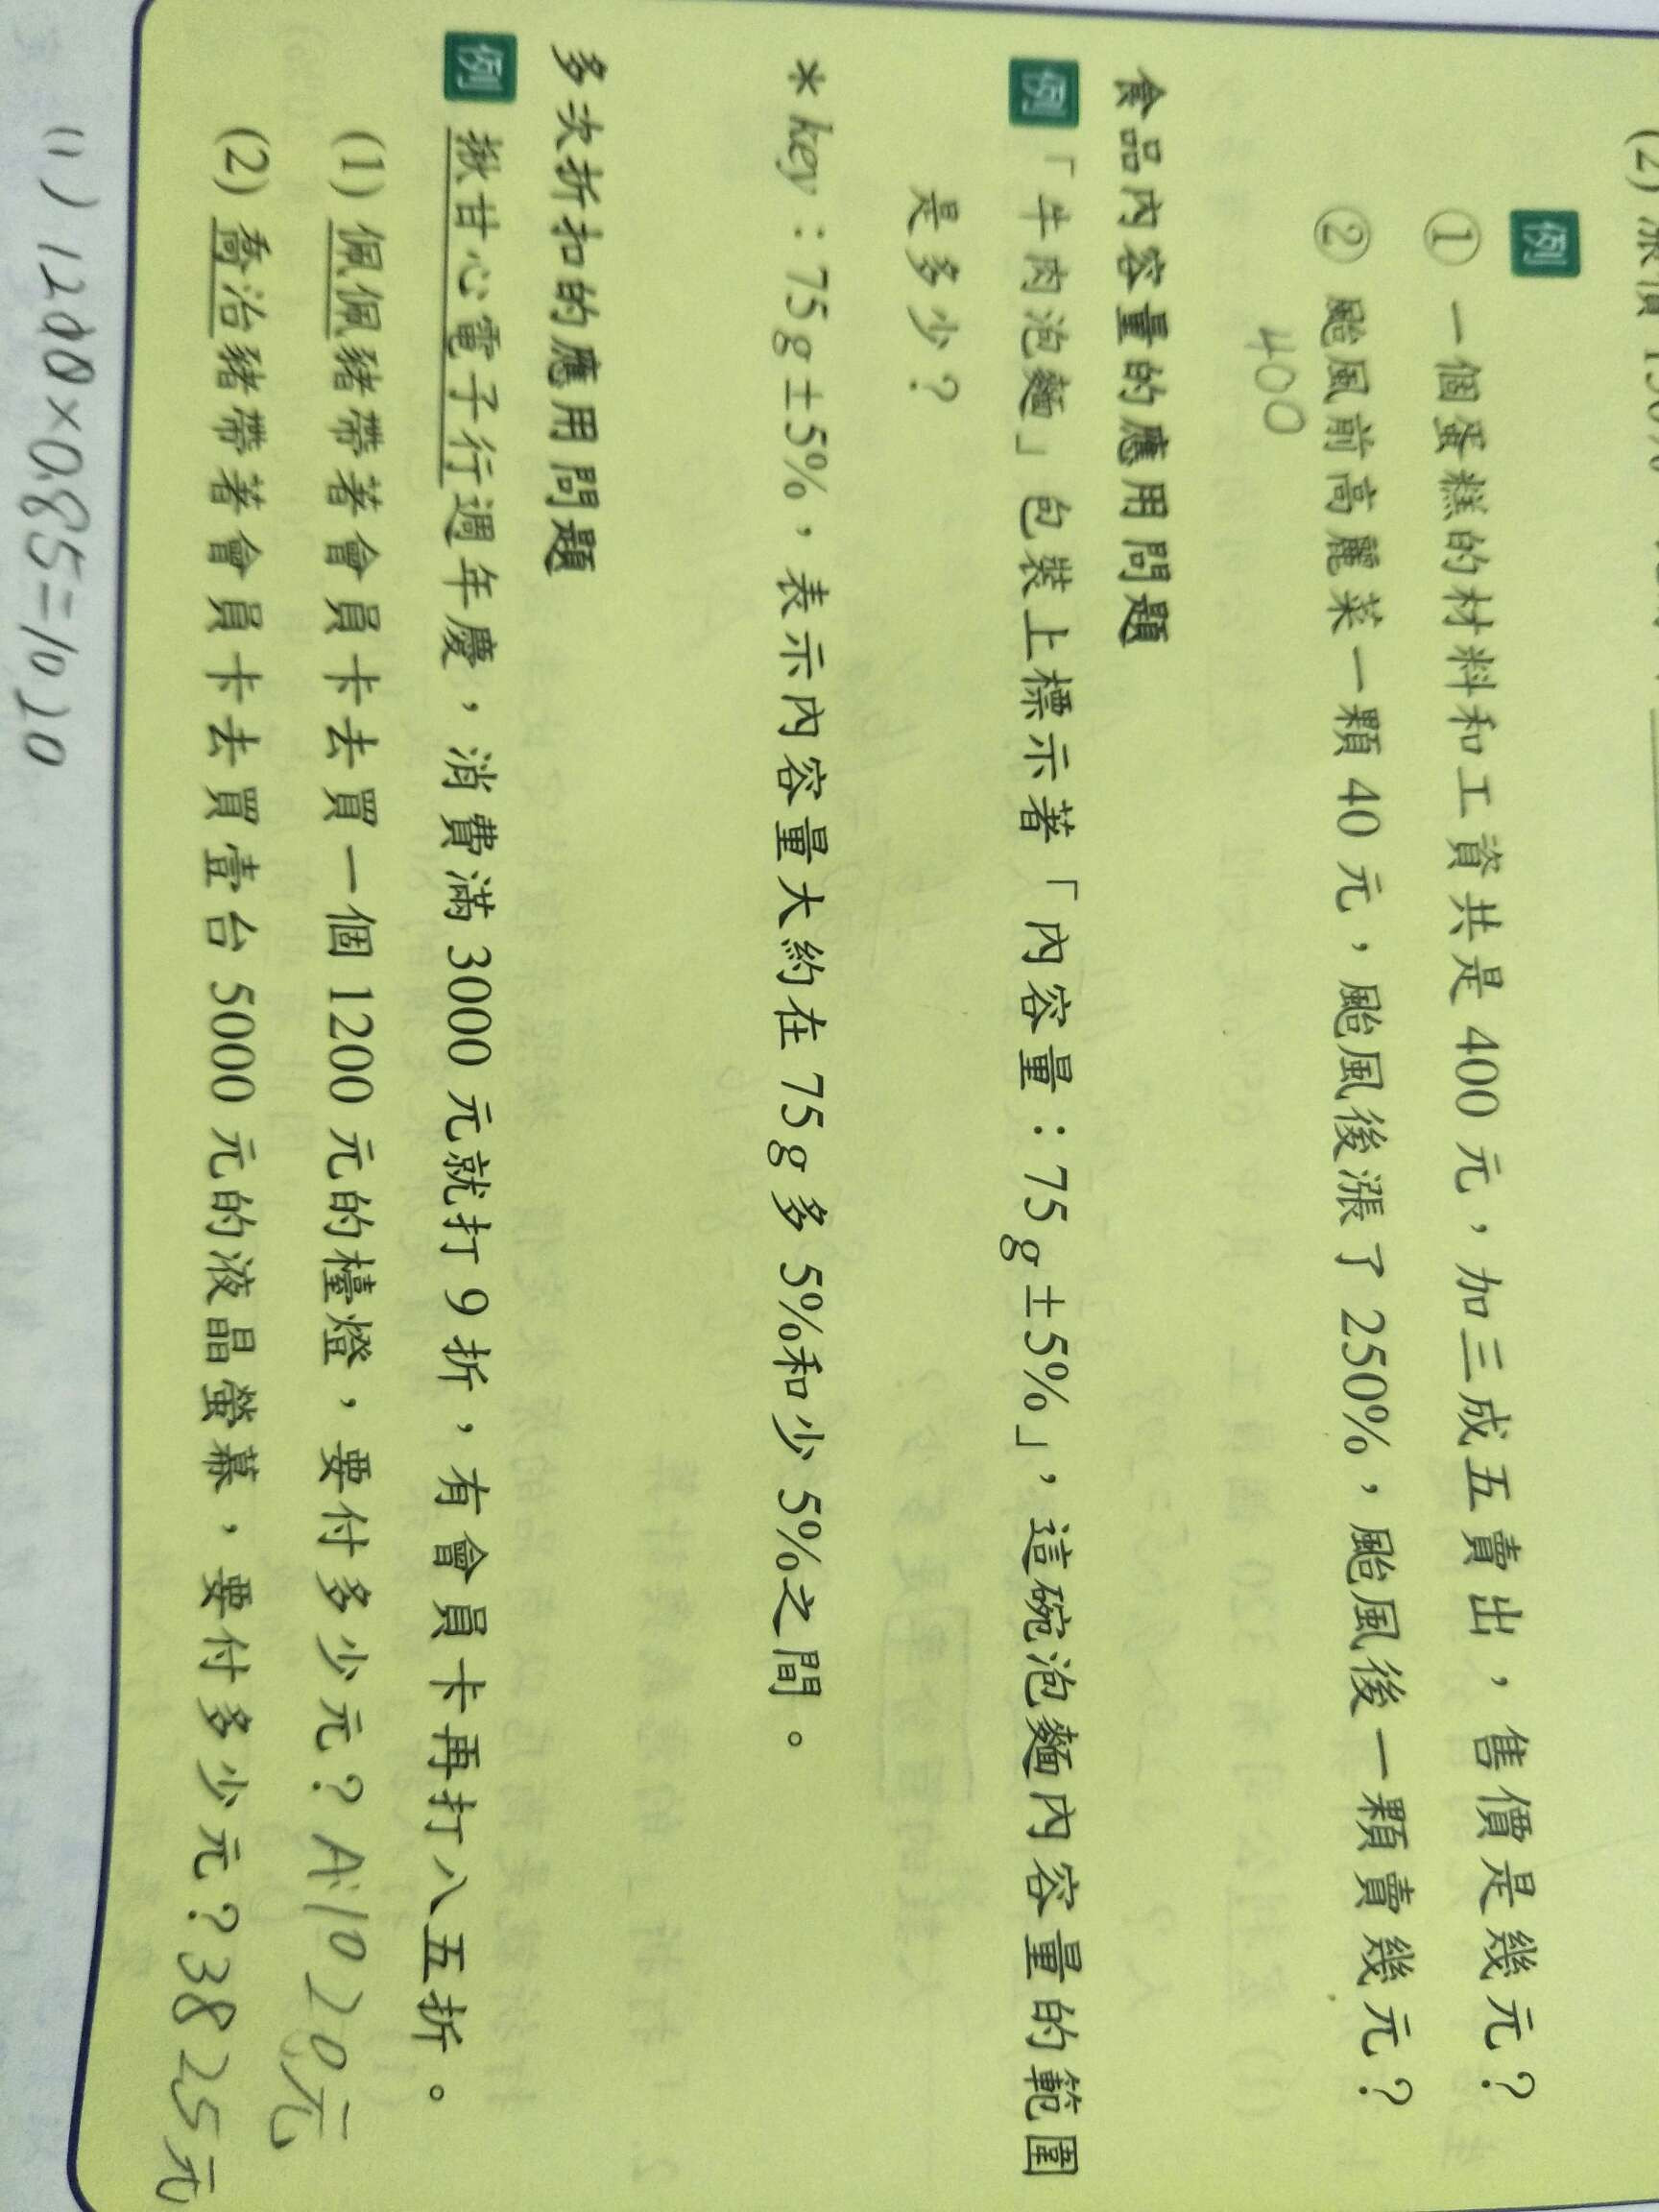 例
① 一個蛋糕的材料和工資共是 400 元，加三成五賣出，售價是幾元？
② 颱風前高麗菜一顆 40 元，颱風後漲了 250%，颱風後一顆賣幾元？
400
食品內容量的應用問題
例「牛肉泡麵」包裝上標示著「內容量：75g±5%」，這碗泡麵內容量的範圍
是多少？
＊key：75g±5%，表示內容量大約在 75g 多 5%和少 5%之間。
多次折扣的應用問題
例 揪甘心電子行週年慶，消費滿 3000 元就打 9 折，有會員卡再打八五折。
(1) 佩佩豬帶著會員卡去買一個 1200 元的檯燈，要付多少元？A:1020元
(2) 喬治豬帶著會員卡去買壹台 5000 元的液晶螢幕，要付多少元？3825元
(1) 1200×0.85=1020